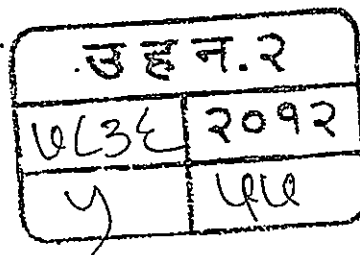 उहन.२
७८३६ २०१२
५ ५७